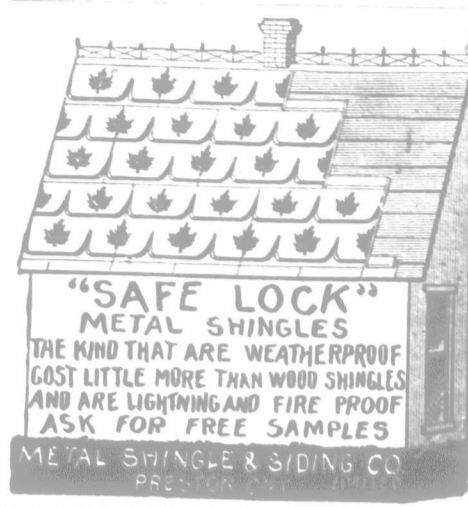 "SAFE LOCK"
METAL SHINGLES
THE KIND THAT ARE WEATHERPROOF
COST LITTLE MORE THAN WOOD SHINGLES
AND ARE LIGHTNING AND FIRE PROOF
ASK FOR FREE SAMPLES
METAL SHINGLE & SIDING CO
PRESTON ONT LIMITED